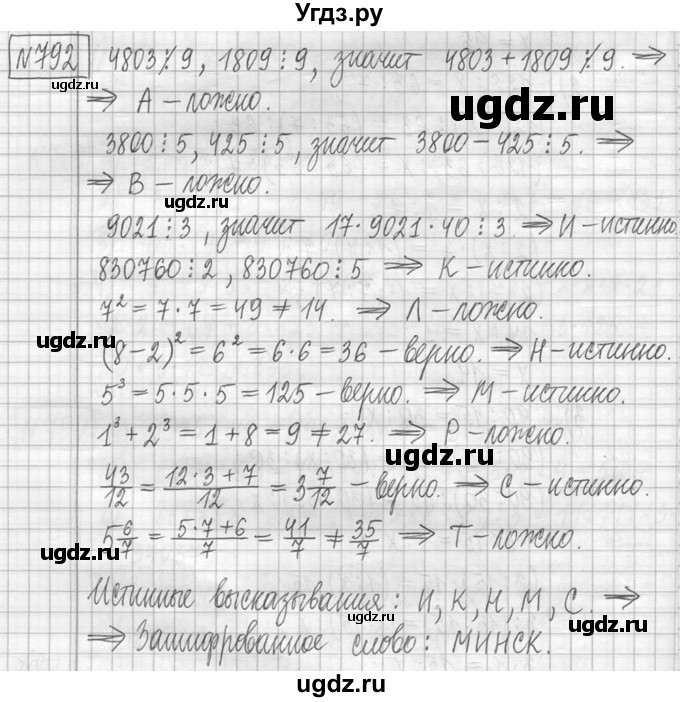 Угдз.ру
№792 4803⋮̸9, 1809⋮9, значит 4803+1809⋮̸9. ⇒
⇒ А – ложно.
ugdz.ru
3800⋮5, 425⋮5, значит 3800–425⋮5. ⇒
⇒ В – ложно.
ugdz.ru
9021⋮3, значит 17·9021·40⋮3 ⇒ И – истинно.
830760⋮2, 830760⋮5 ⇒ К – истинно.
7² = 7·7 = 49 ≠ 14. ⇒ Л – ложно.
ugdz.ru
(8–2)² = 6² = 6·6 = 36 – верно. ⇒ Н – истинно.
5³ = 5·5·5 = 125 – верно. ⇒ М – истинно.
1³ + 2³ = 1 + 8 = 9 ≠ 27. ⇒ Р – ложно.
ugdz.ru
43/12 = (12·3+7)/12 = 3 7/12 – верно. ⇒ С – истинно.
5 6/7 = (5·7+6)/7 = 41/7 ≠ 35/7 ⇒ Т – ложно.
ugdz.ru
Истинные высказывания: И, К, Н, М, С. ⇒
⇒ Зашифрованное слово: МИНСК.
ugdz.ru
ugdz.ru